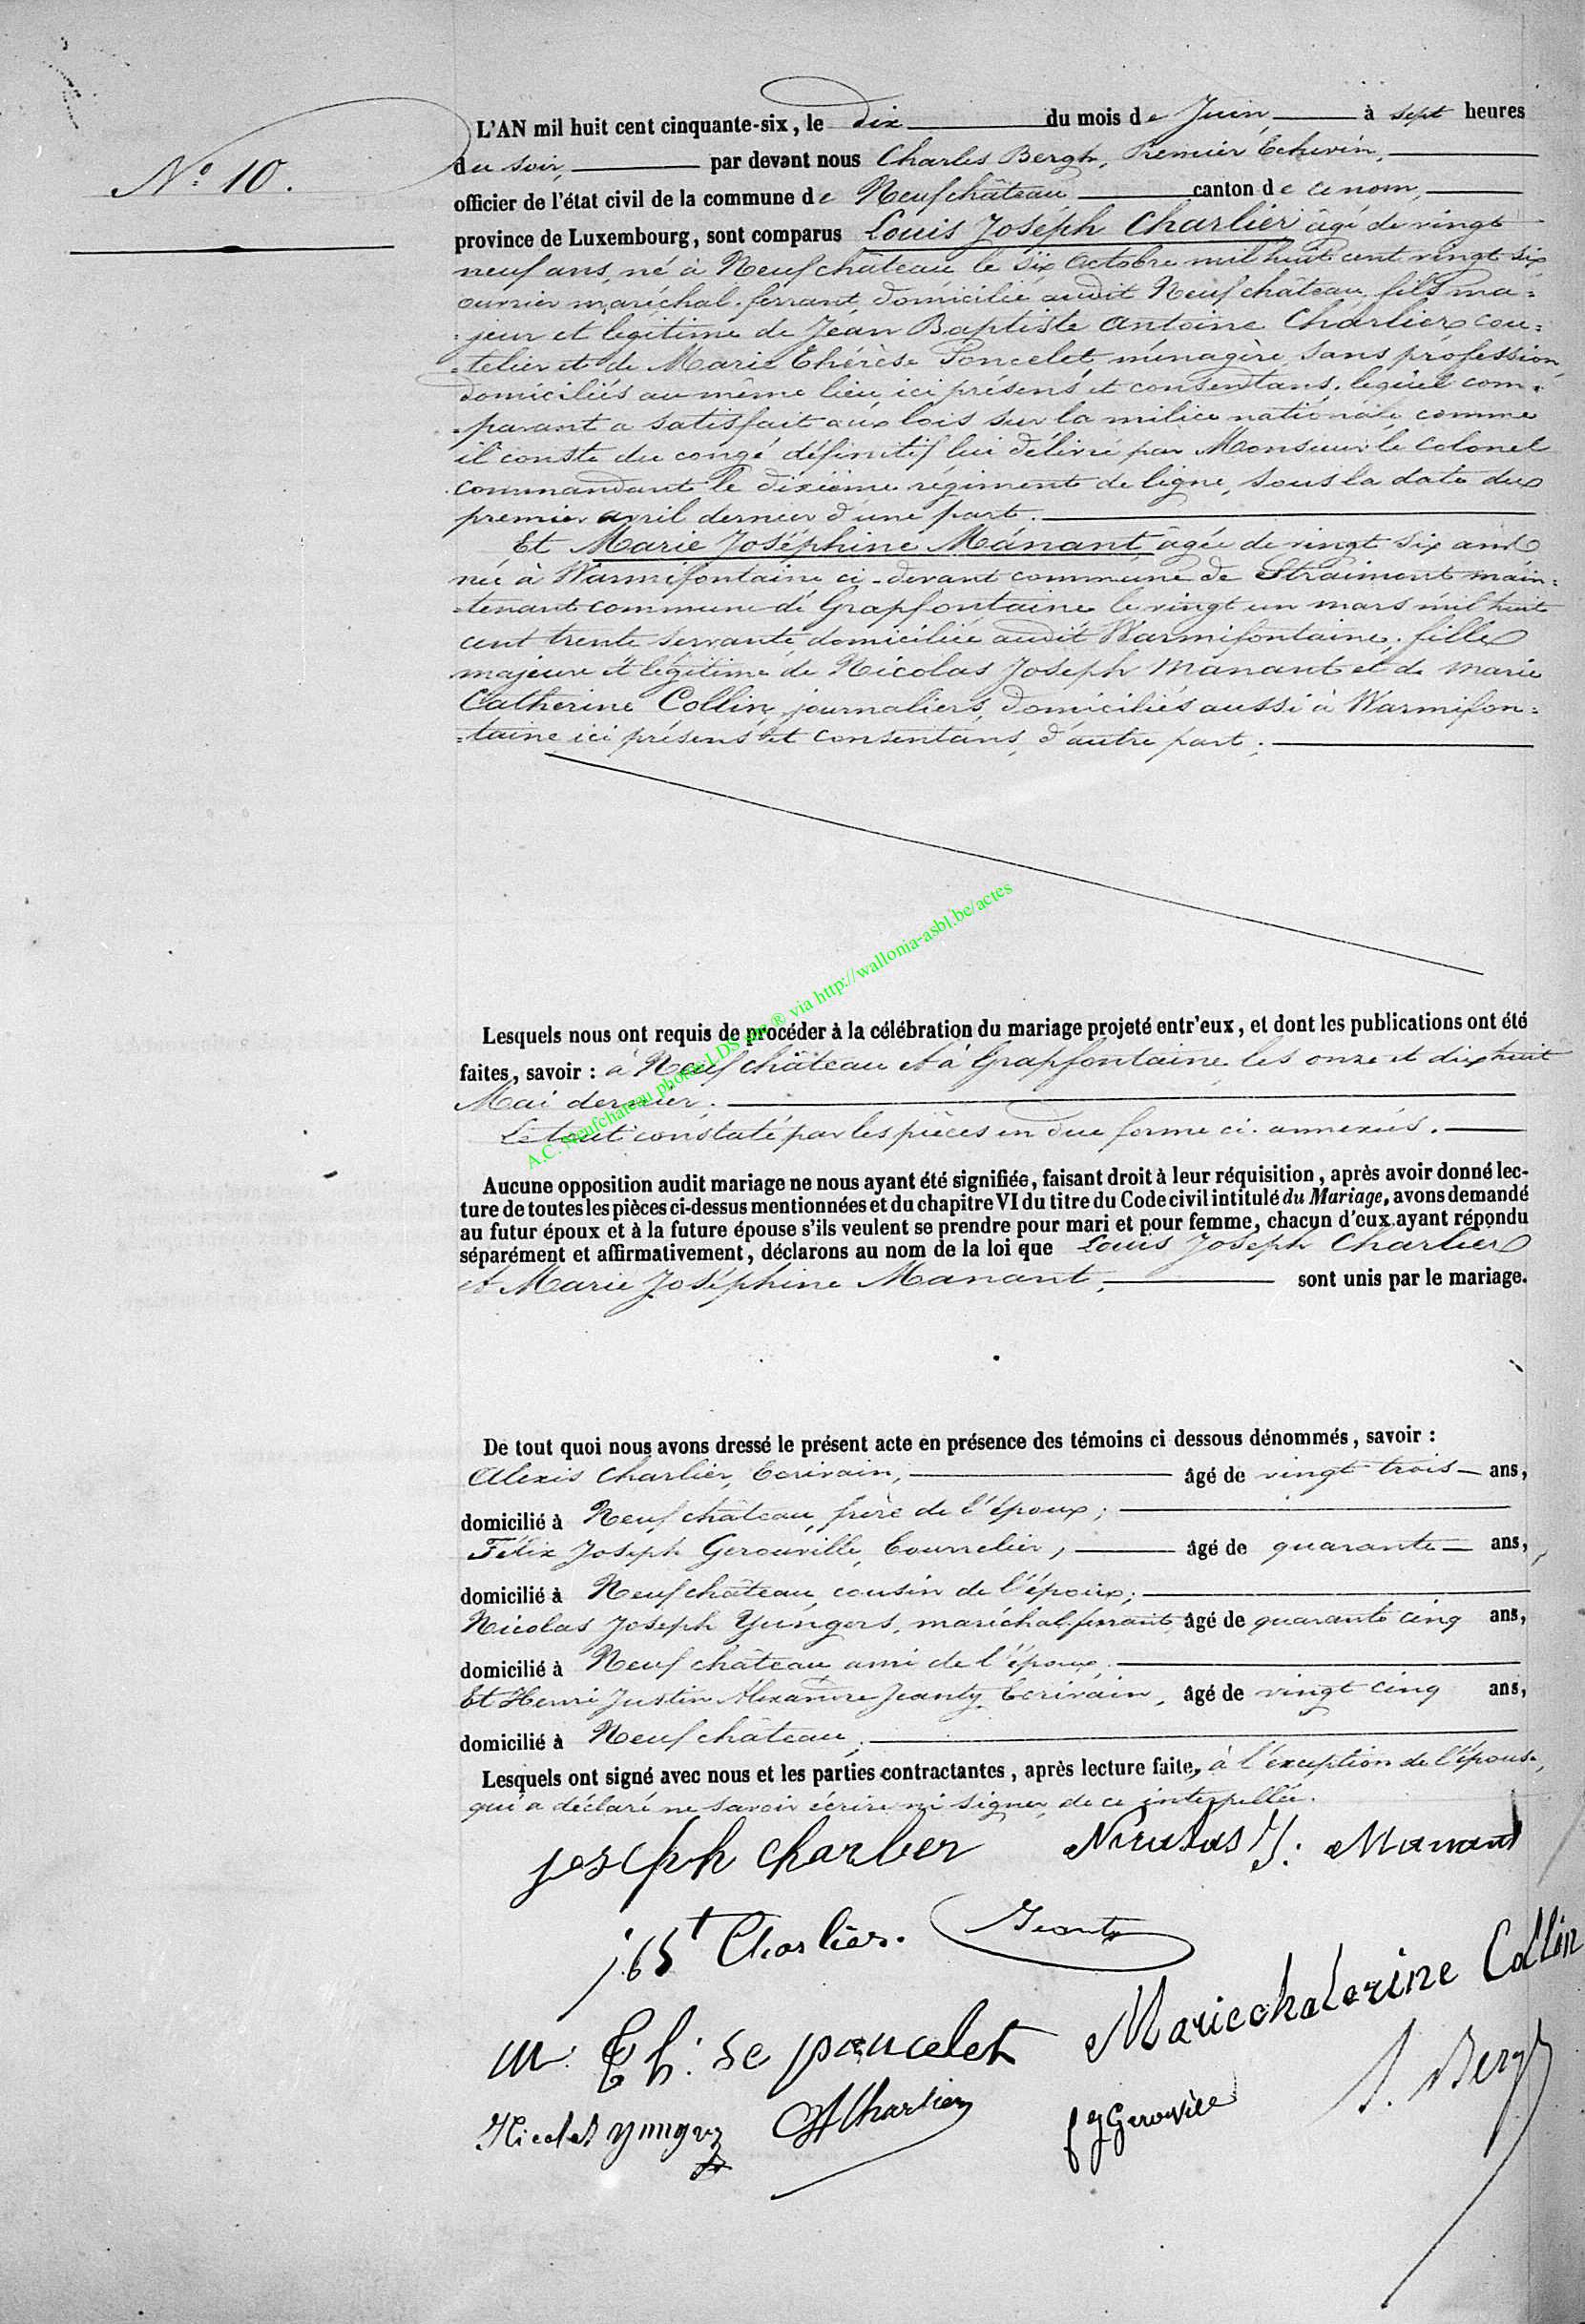 N.° 10.
L'AN mil huit cent cinquante-six, le dix du mois de Juin, à sept heures
du soir, par devant nous Charles Bergh, Premier Echevin,
officier de l'état civil de la commune de Neufchâteau canton de ce nom,
province de Luxembourg, sont comparus Louis Joséph Charlier âgé de vingt
neuf ans, né à Neufchâteau le six Octobre mil huit cent vingt six
ouvrier maréchal-ferrant, domicilié audit Neufchâteau, fils ma=
=jeur et légitime de Jean Baptiste Antoine Charlier cou=
=telier et de Marie Thérèse Poncelet, ménagère sans profession,
domiciliés au même lieu, ici présens et consentans, lequel com=
=parant a satisfait aux lois sur la milice nationale, comme
il conste du congé définitif lui délivré par Monsieur le Colonel
commandant le dixième régiment de ligne, sous la date du
premier avril dernier d'une part.
Et Marie Joséphine Manant âgée de vingt six ans
née à Warmifontaine ci-devant commune de Straimont main=
=tenant commune de Grapfontaine le vingt un mars mil huit
cent trente servante, domiciliée audit Warmifontaine, fille
majeure et légitime de Nicolas Joseph Manant et de Marie
Catherine Collin, journaliers, domiciliés aussi à Warmifon=
=taine ici présens et consentans, d'autre part.
Lesquels nous ont requis de procéder à la célébration du mariage projeté entr'eux, et dont les publications ont été
faites, savoir : à Neufchâteau et à Grapfontaine, les onze et dix huit
Mai dernier.
Le tout constaté par les pièces en due forme ci-annexés.
A.C. Neufchateau photos LDS sur ® via http://wallonia-asbl.be/actes
Aucune opposition audit mariage ne nous ayant été signifiée, faisant droit à leur réquisition, après avoir donné lec-
ture de toutes les pièces ci-dessus mentionnées et du chapitre VI du titre du Code civil intitulé du Mariage, avons demandé
au futur époux et à la future épouse s'ils veulent se prendre pour mari et pour femme, chacun d'eux ayant répondu
séparément et affirmativement, déclarons au nom de la loi que Louis Joseph Charlier
et Marie Joséphine Manant, sont unis par le mariage.
De tout quoi nous avons dressé le présent acte en présence des témoins ci dessous dénommés, savoir :
Alexis Charlier, Ecrivain, âgé de vingt trois ans,
domicilié à Neufchâteau, frère de l'époux;
Félix Joseph Gerouville, bourrelier, âgé de quarante ans,
domicilié à Neufchâteau, cousin de l'époux;
Nicolas Joseph Yungers, maréchal-ferrant, âgé de quarante cinq ans,
domicilié à Neufchâteau ami de l'époux,
Et Henri Justin Alexandre Jeanty, Ecrivain, âgé de vingt cinq ans,
domicilié à Neufchâteau,
Lesquels ont signé avec nous et les parties contractantes, après lecture faite, à l'exception de l'épouse,
qui a déclaré ne savoir écrire ni signer, de ce interpellée.
joseph charlier Nicolas J: Manant
jbt Charlier. Jeanty
m: Th: se poncelet Marie chaterine Collin
Nicolas yungers A Charlier f J Gerouville Bergh